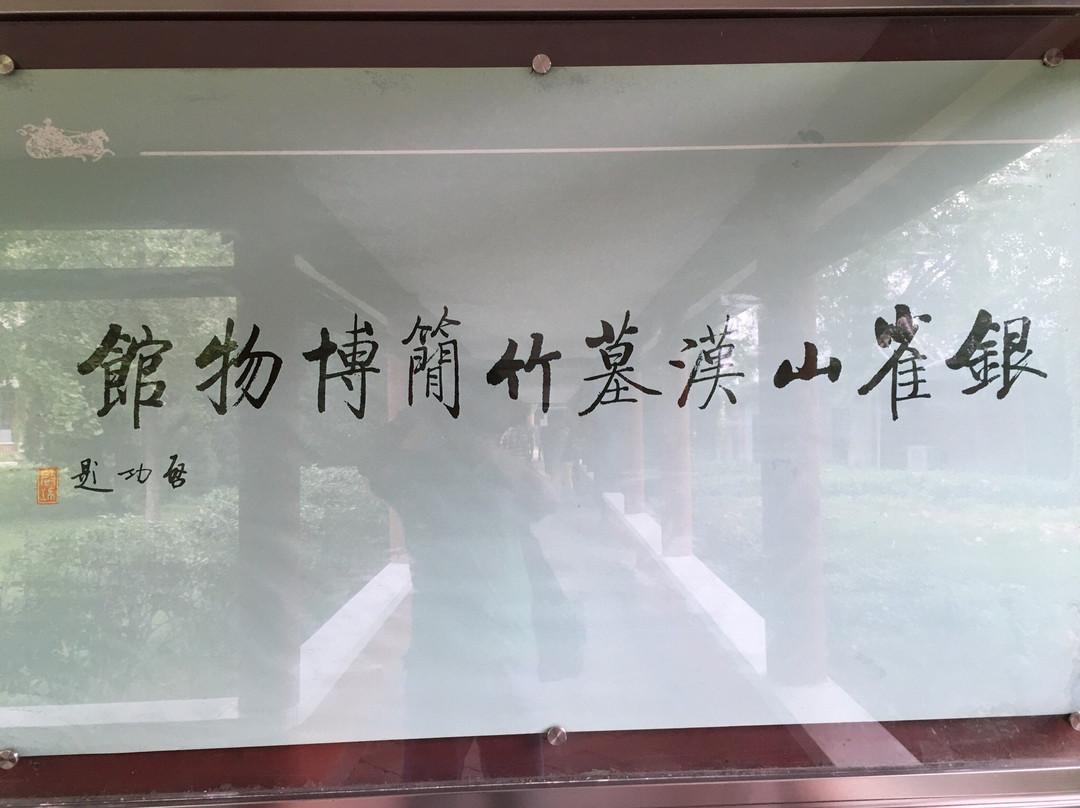 銀雀山漢墓竹簡博物館
啓功題